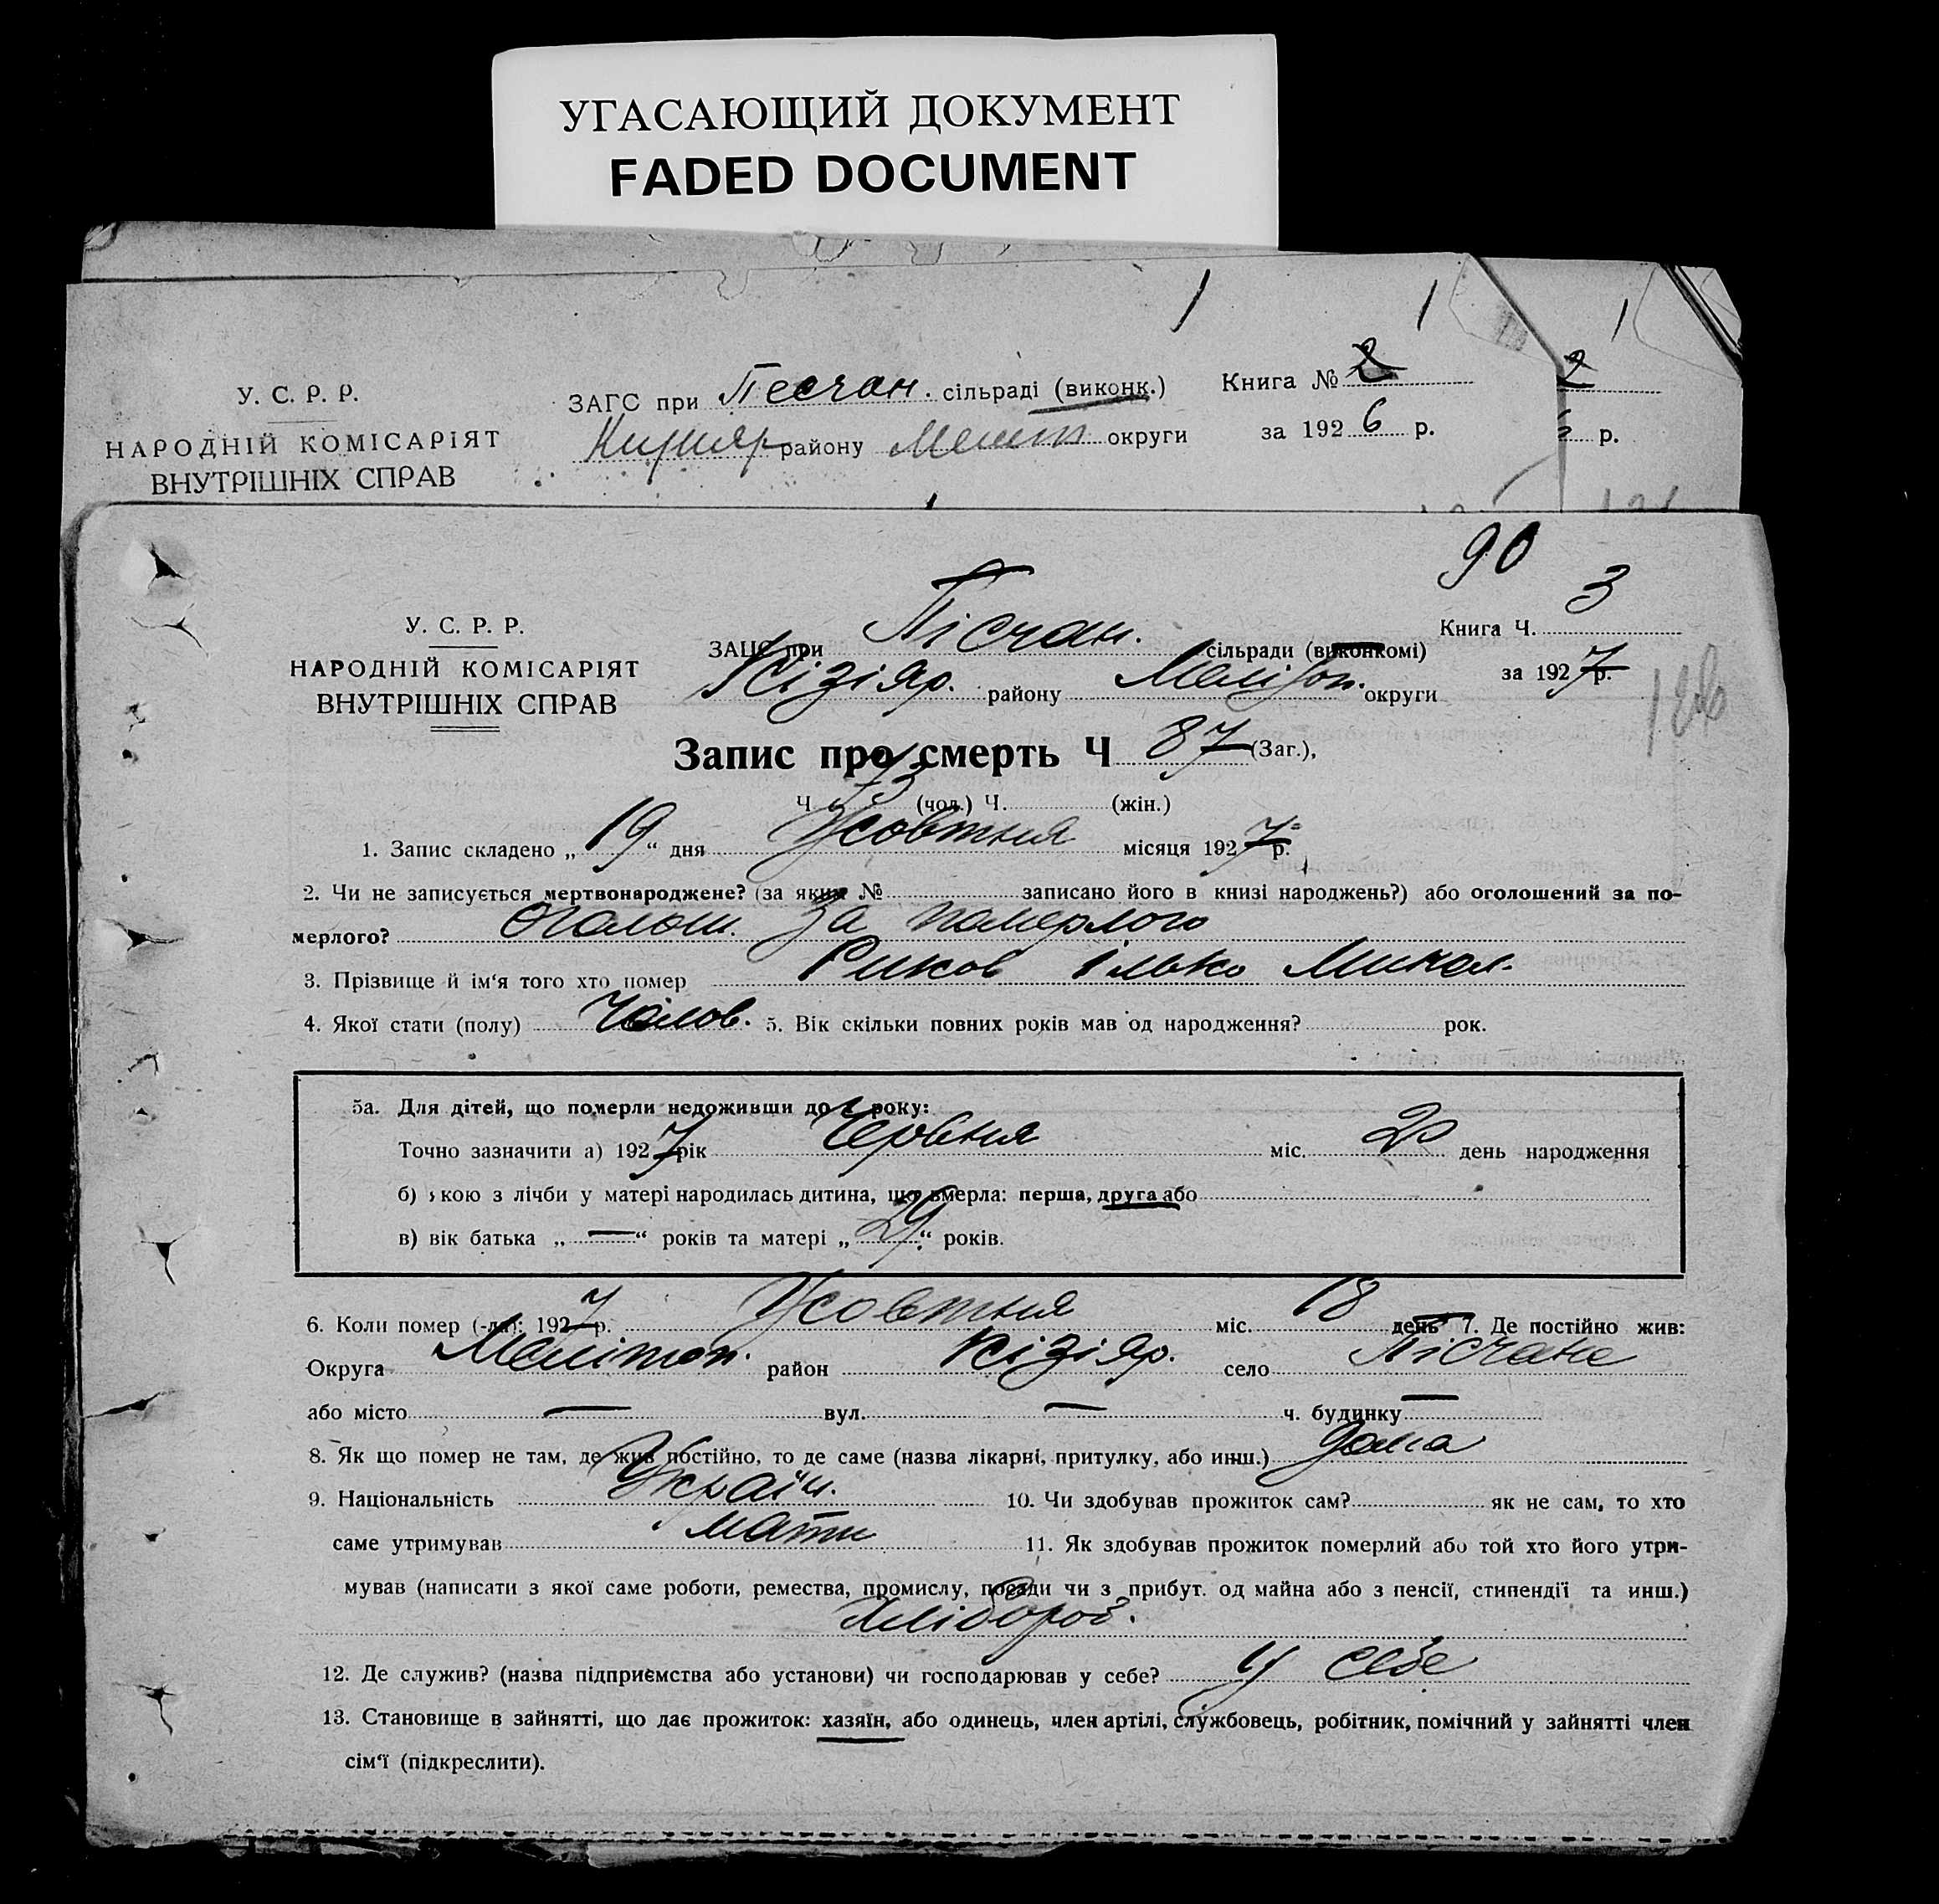 УГАСАЮЩИЙ ДОКУМЕНТ
FADED DOCUMENT
1 1 1
У. С. Р. Р.
НАРОДНІЙ КОМІСАРІЯТ
ВНУТРІШНІХ СПРАВ
ЗАГС при Песчан. сільраді (виконк.)
району Мелит округи
Книга № 2
за 1926 р.
2
р.
90
У. С. Р. Р.
НАРОДНІЙ КОМІСАРІЯТ
ВНУТРІШНІХ СПРАВ
ЗАЦС при Пісчан. сільради (виконкомі)
Кізіяр. району Меліто́п. округи
Книга Ч. 3
за 1927 р.
Запис про смерть Ч 87 (Заг.),
Ч (чол.) Ч. (жін.)
1. Запис складено „19“ дня Жовтня місяця 1927 р.
2. Чи не записується мертвонароджене? (за яким № записано його в книзі народжень?) або оголошений за по-
мерлого? оголош. за померлого
3. Прізвище й ім'я того хто помер Риков Ілько Микол.
4. Якої стати (полу) Чолов. 5. Вік скільки повних років мав од народження? рок.
5а. Для дітей, що померли недоживши до 1 року:
Точно зазначити а) 1927 рік Червня міс. 20 день народження
б) якою з лічби у матері народилась дитина, що вмерла: перша, друга або
в) вік батька „—“ років та матері „29“ років.
6. Коли помер (-ла): 1927 р. Жовтня міс. 18 день 7. Де постійно жив:
Округа Мелітоп. район Кізіяр. село Пісчане
або місто — вул. — ч. будинку —
8. Як що помер не там, де жив постійно, то де саме (назва лікарні, притулку, або инш.) дома
9. Національність Україн. 10. Чи здобував прожиток сам? як не сам, то хто
саме утримував мати 11. Як здобував прожиток померлий або той хто його утри-
мував (написати з якої саме роботи, ремества, промислу, посади чи з прибут. од майна або з пенсії, стипендії та инш.)
хлібороб.
12. Де служив? (назва підприємства або установи) чи господарював у себе? У себе
13. Становище в зайнятті, що дає прожиток: хазяїн, або одинець, член артілі, службовець, робітник, помічний у зайнятті член
сім'ї (підкреслити).